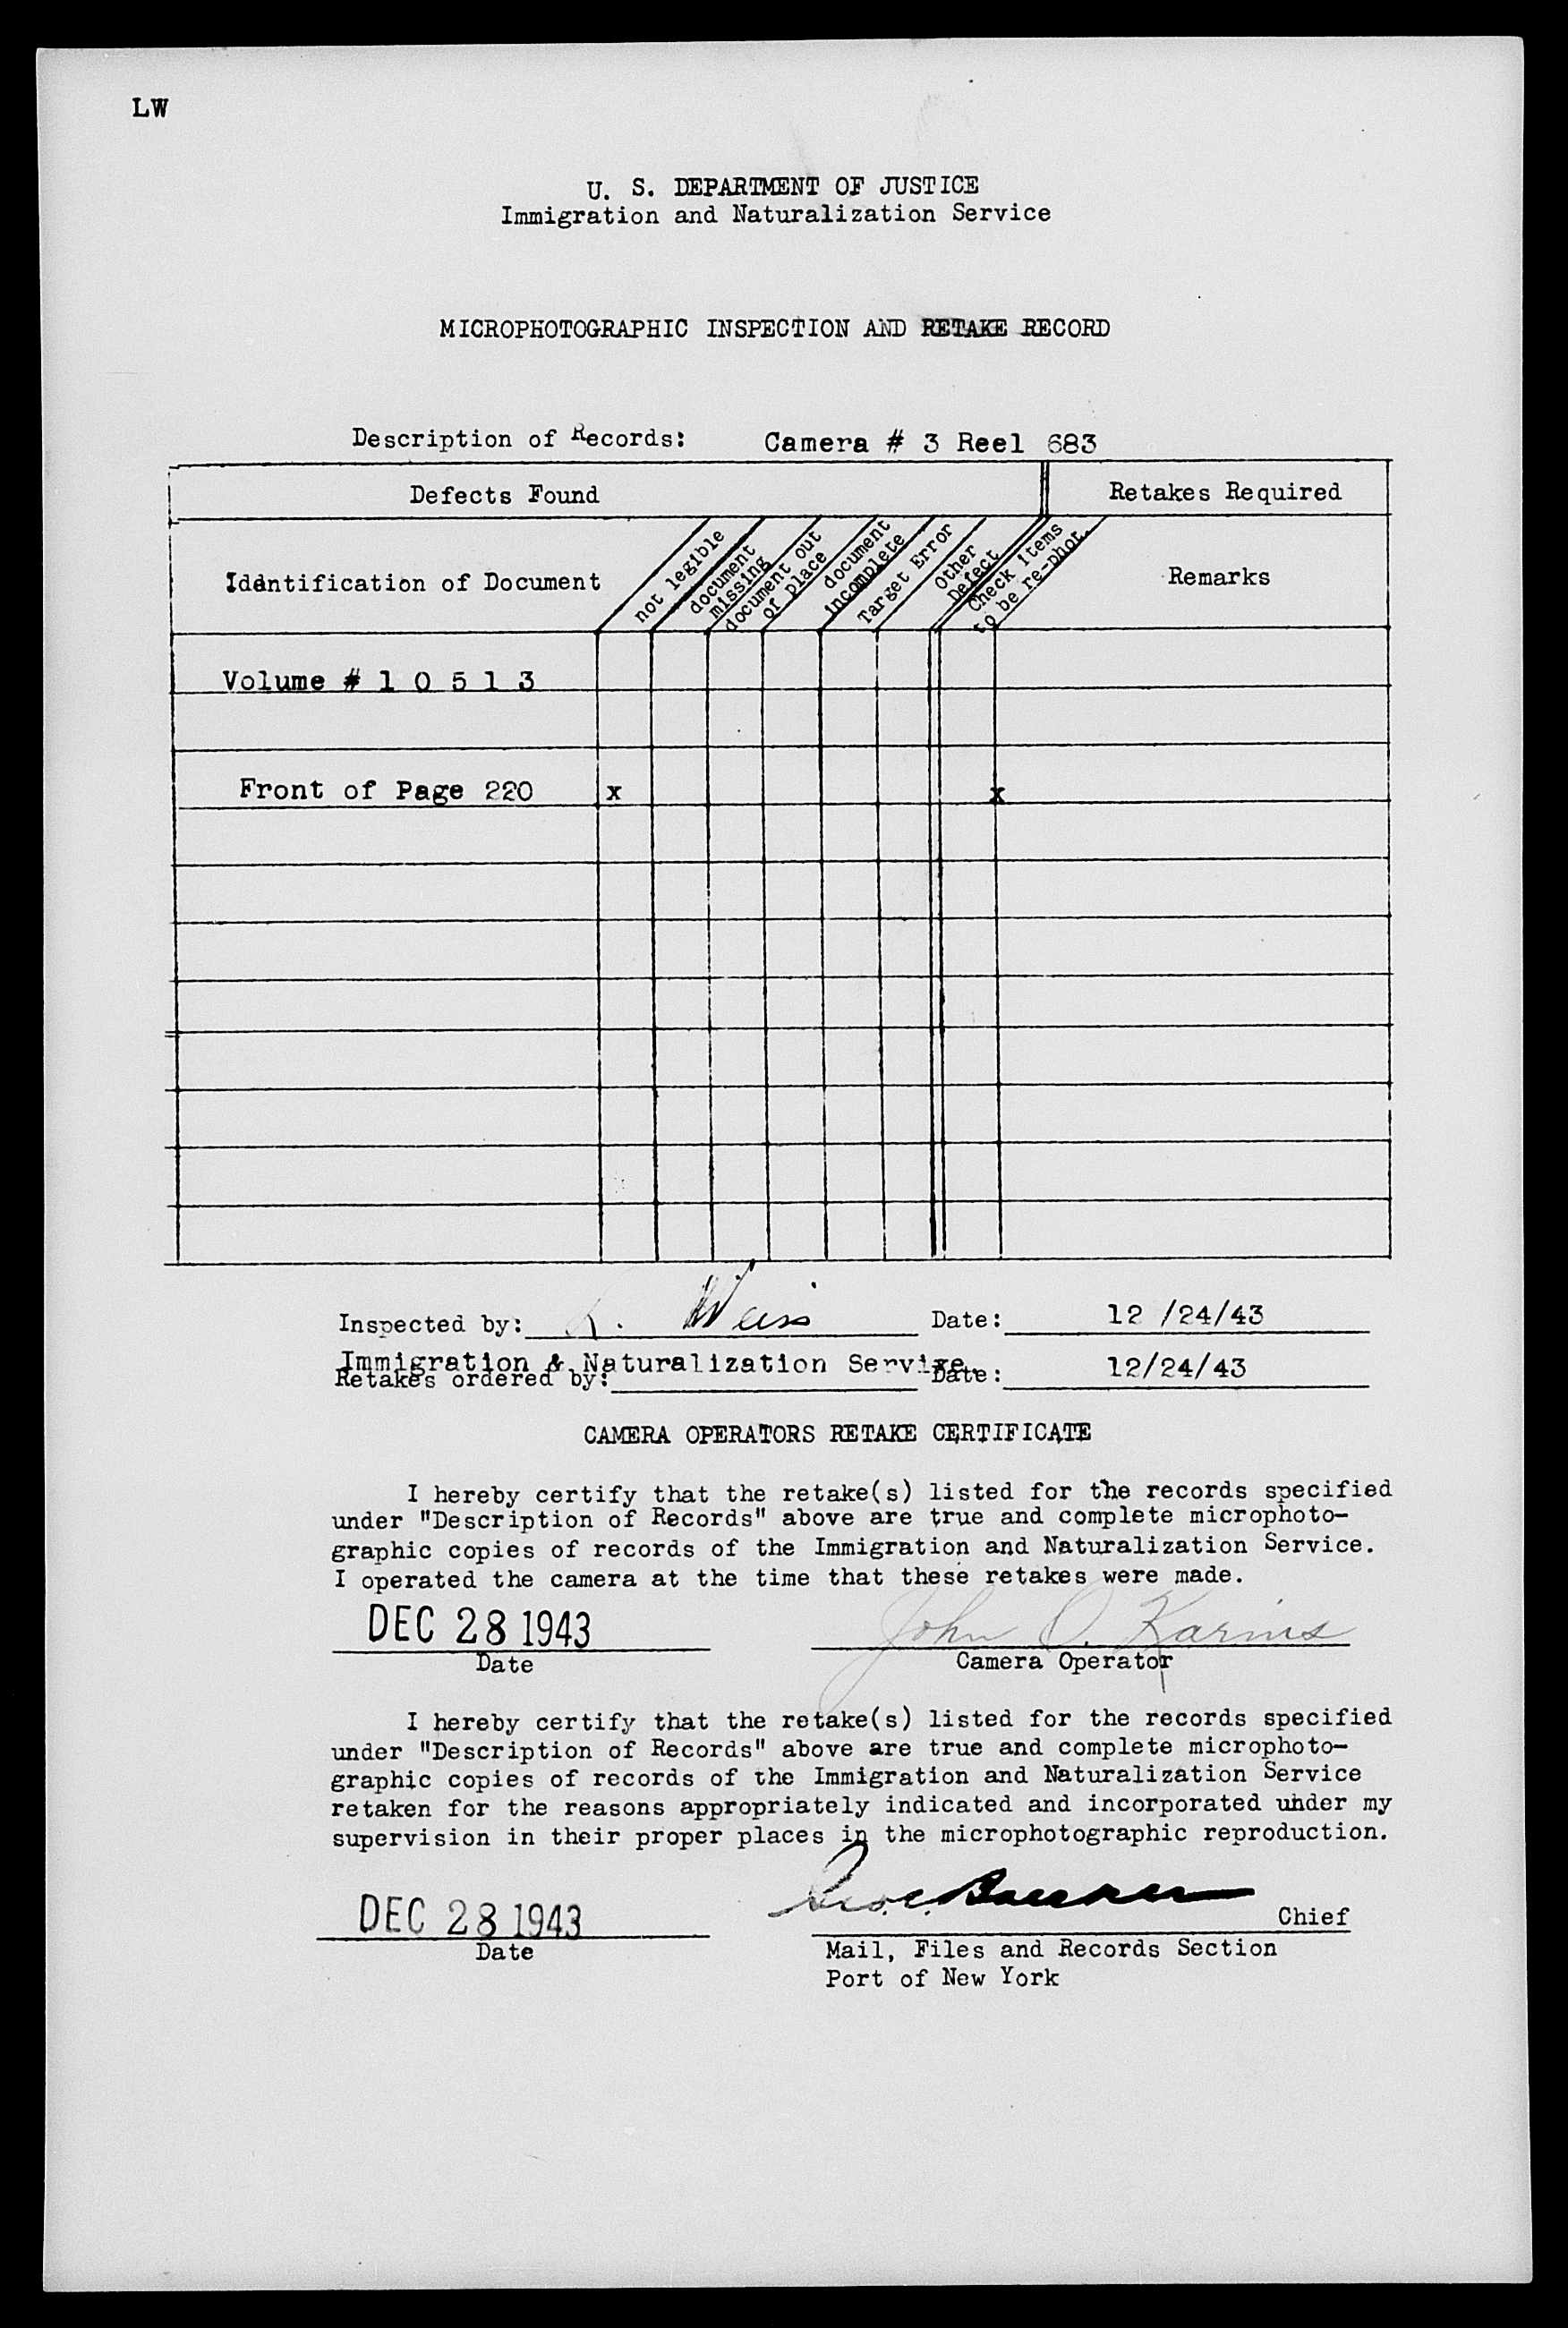 LW
U. S. DEPARTMENT OF JUSTICE
Immigration and Naturalization Service
MICROPHOTOGRAPHIC INSPECTION AND RETAKE RECORD
Description of Records: Camera # 3 Reel 683
Defects Found Retakes Required
Identification of Document
not legible
document
missing
document out
of place
document
incomplete
Target Error
Other
Defect
Check items
to be re-phot.
Remarks
Volume # 1 0 5 1 3
Front of Page 220 x x
Inspected by: L. Weiss Date: 12 /24/43
Immigration & Naturalization Service.
Retakes ordered by: Date: 12/24/43
CAMERA OPERATORS RETAKE CERTIFICATE
I hereby certify that the retake(s) listed for the records specified
under "Description of Records" above are true and complete microphoto-
graphic copies of records of the Immigration and Naturalization Service.
I operated the camera at the time that these retakes were made.
DEC 28 1943 John O. Karins
Date Camera Operator
I hereby certify that the retake(s) listed for the records specified
under "Description of Records" above are true and complete microphoto-
graphic copies of records of the Immigration and Naturalization Service
retaken for the reasons appropriately indicated and incorporated under my
supervision in their proper places in the microphotographic reproduction.
DEC 28 1943 Chief
Date Mail, Files and Records Section
Port of New York